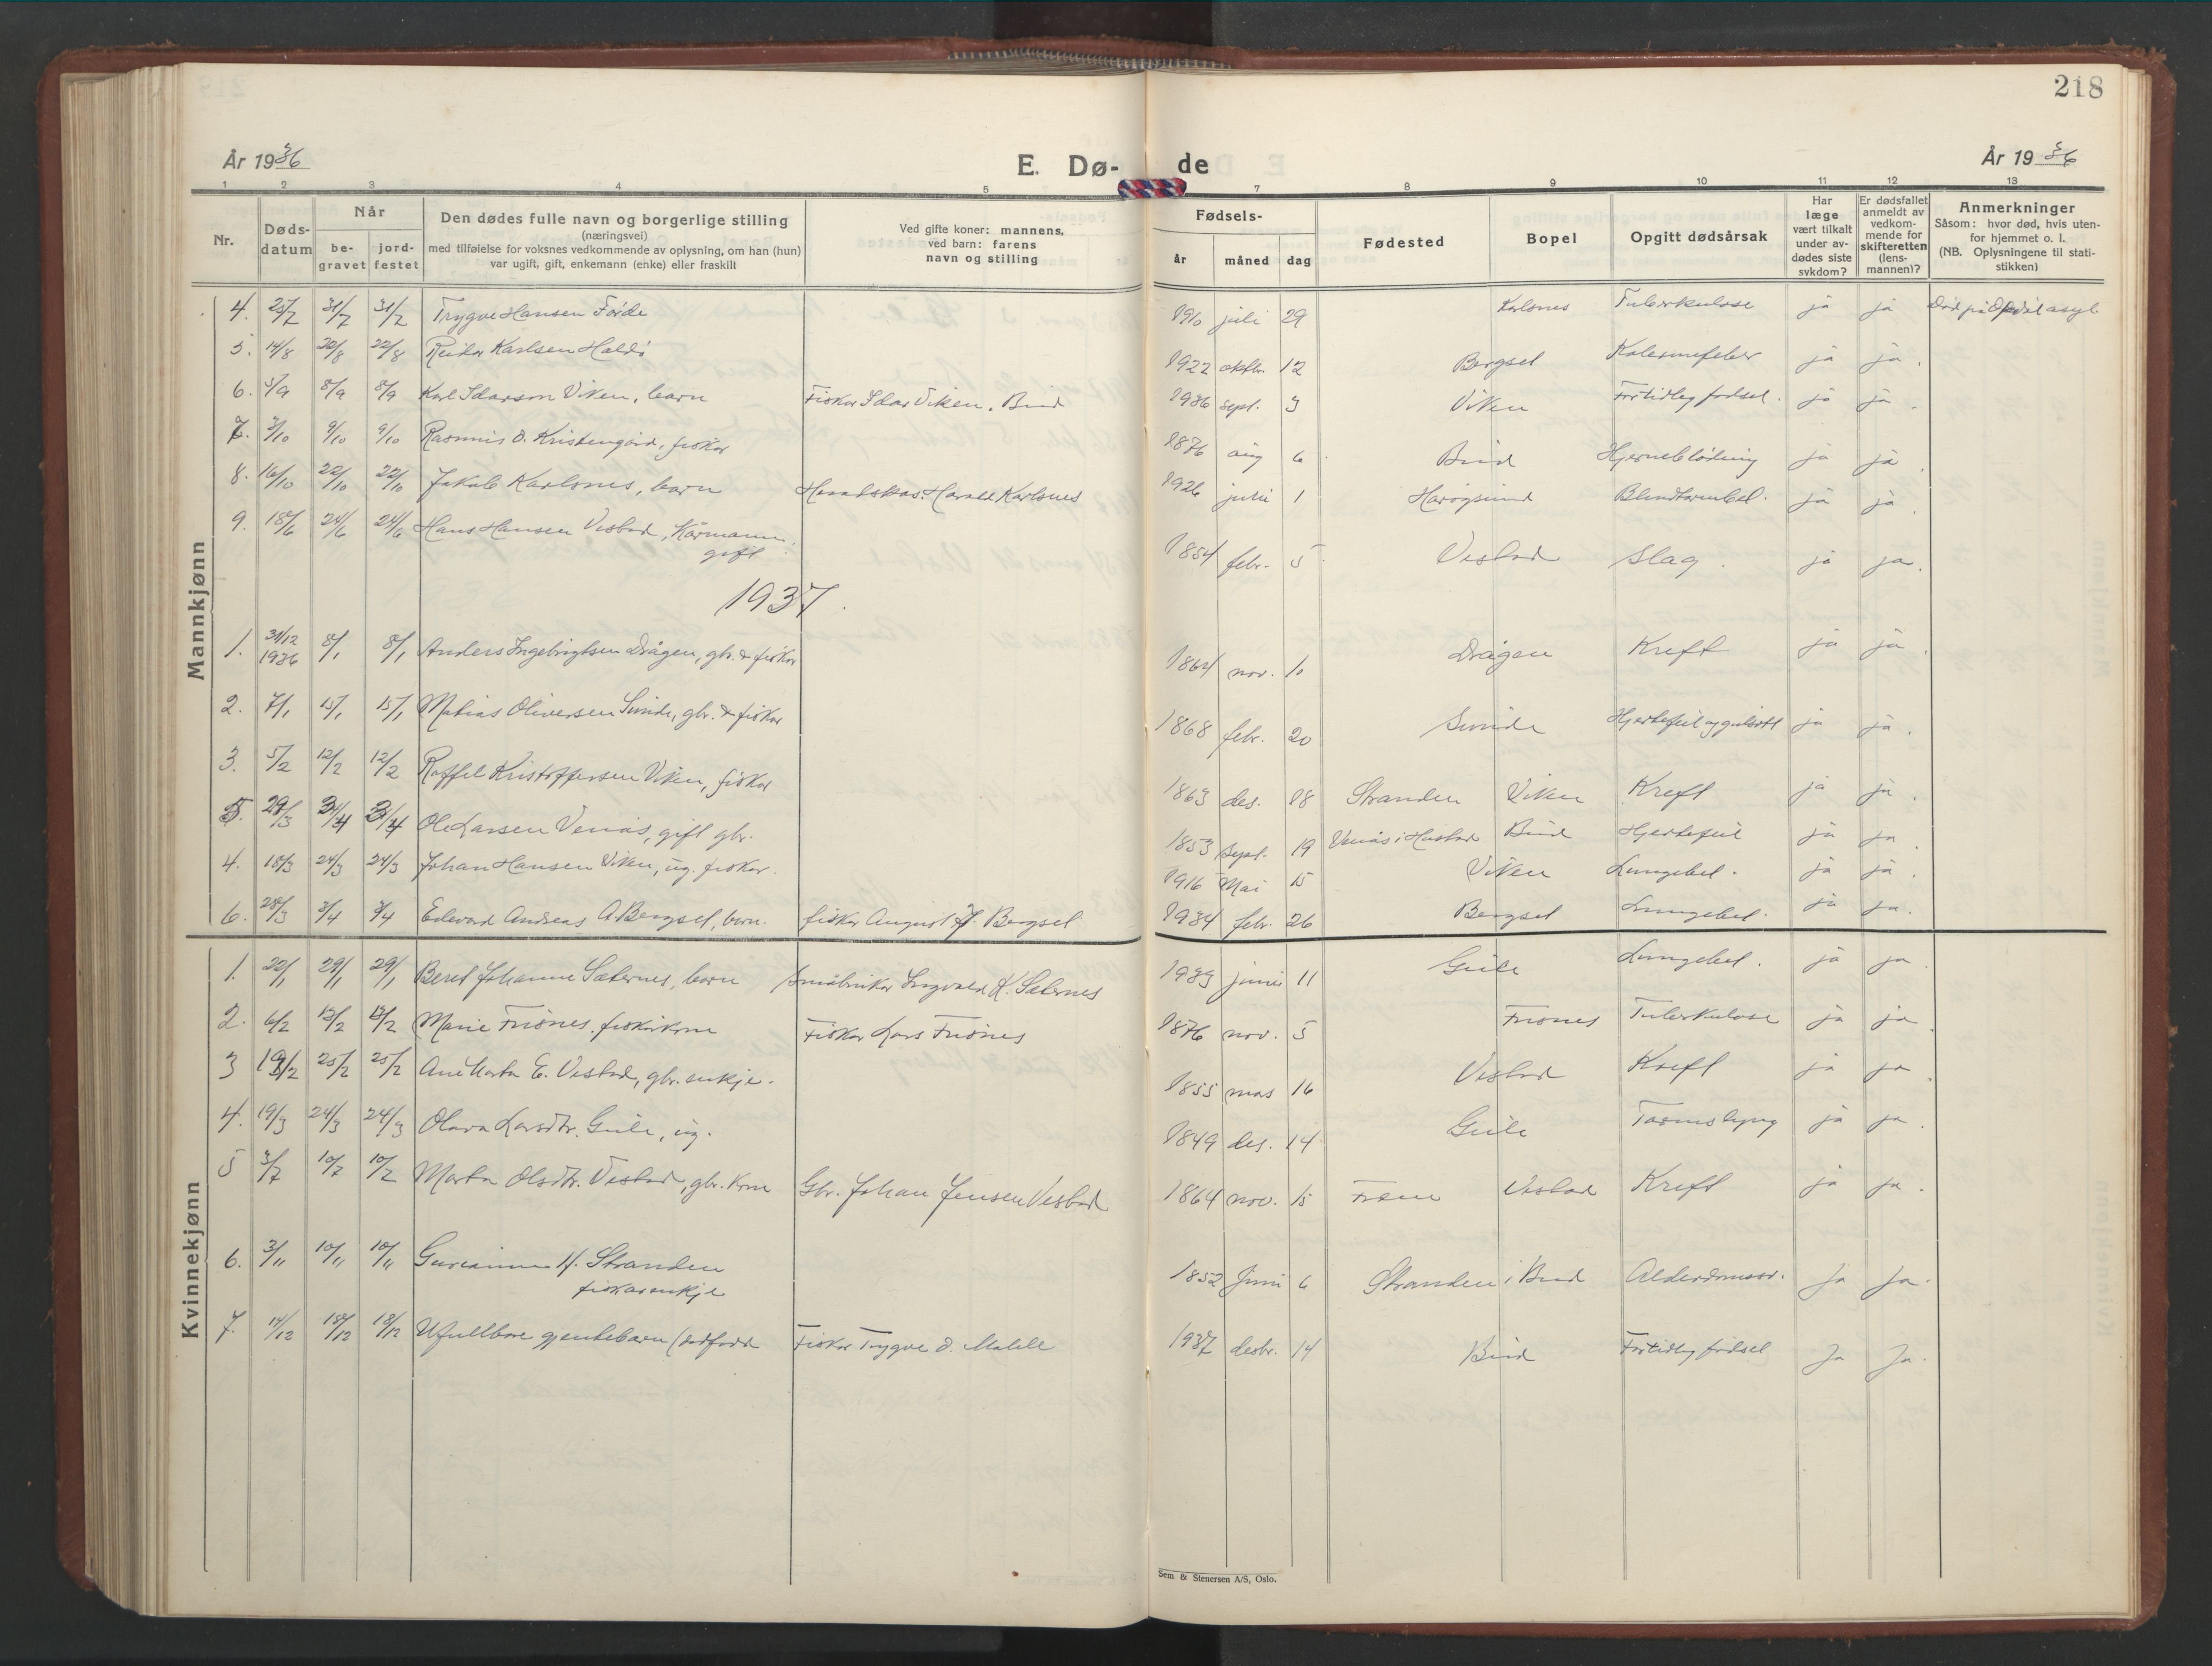 218
År 1936
E. Dø- de
År 1936
1 2 3 4 5 7 8 9 10 11 12 13
Nr.
Døds-
datum
Når
be-
gravet
jord-
festet
Den dødes fulle navn og borgerlige stilling
(næringsvei)
med tilføielse for voksnes vedkommende av oplysning, om han (hun)
var ugift, gift, enkemann (enke) eller fraskilt
Ved gifte koner: mannens,
ved barn: farens
navn og stilling
Fødsels-
år måned dag
Fødested
Bopel
Opgitt dødsårsak
Har
læge
vært tilkalt
under av-
dødes siste
sykdom?
Er dødsfallet
anmeldt av
vedkom-
mende for
skifteretten
(lens-
mannen)?
Anmerkninger
Såsom: hvor død, hvis uten-
for hjemmet o. l.
(NB. Oplysningene til stati-
stikken)
Mannkjønn
4. 25/7 31/7 31/7 Trygve Hansen Førde 1910 juli 29 Karlsnes Tuberkulose ja ja Død på Opdøl asyl
5. 14/8 22/8 22/8 Reidar Karlsen Haldö 1922 oktbr. 12 Bergset ja ja.
6. 3/9 8/9 8/9 Karl Idarson Viken, barn Fisker Idar Viken, Bud 1936 sept. 3 Viken Fortidleg fødsel. ja ja.
7. 3/10 9/10 9/10 Rasmus O. Kristengård, fisker 1876 aug 6 Bud Hjerneblødning ja ja.
8. 16/10 22/10 22/10 Jakob Karlsnes, barn Heradskas. Harald Karlsnes 1926 juni 1 Harøysund Blindtarmbet. ja ja.
9. 18/6 24/6 24/6 Hans Hansen Vestad, Kårmann,
gift 1854 febr. 5 Vestad Slag. ja ja.
1937.
1. 31/12
1936 8/1 8/1 Anders Ingebrigtsen Drågen, gbr. & fisker 1864 nov. 10 Drågen Kreft ja ja
2. 7/1 15/1 15/1 Matias Oliversen Sunde, gbr. & fisker 1868 febr. 20 Sunde Hjertefeil og gulsott ja ja.
3. 5/2 12/2 12/2 Raffel Kristoffersen Viken, fisker 1863 des. 18 Stranden Viken Kreft ja ja.
5. 29/3 3/4 3/4 Ole Larsen Venås, gift gbr. 1853 Sept. 19 Venås i Hustad Bud Hjertefeil ja ja.
4. 18/3 24/3 24/3 Johan Hansen Viken, ug. fisker. 1916 Mai 15 Viken Lungebet. ja ja.
6. 28/3 3/4 3/4 Edvard Andreas A. Bergset, barn. fisker August H. Bergset 1934 febr. 26 Bergset Lungebet. ja ja.
Kvinnekjønn
1. 22/1 29/1 29/1 Beret Johanne Sæternes, barn Småbruker Ingvald K. Sæternes 1933 juni 11 Gule Lungebet. ja ja.
2. 6/2 13/2 13/2 Marie Frisnes, fiskarkone Fisker Lars Frisnes 1876 nov. 5 Frisnes Tuberkulose ja ja.
3 19/2 25/2 25/2 Ane Marta E. Vestad, gbr. enkje. 1855 mars 16 Vestad Kreft ja ja.
4. 19/3 24/3 24/3 Olava Larsdtr. Gule, ug. 1849 des. 14 Gule Tarmslyng ja ja.
5 3/7 10/7 10/7 Marta Olsdtr. Vestad, gbr. kone Gbr. Johan Jensen Vestad 1864 nov. 15 Vestad Kreft ja ja.
6. 3/11 10/11 10/11 H. Stranden
fiskarenkje 1852 Juni 6 Stranden i Bud Alderdomssv. Ja Ja.
7. 14/12 18/12 18/12 Ufullbore gjentebarn (dødfødd Fisker Trygve O. Malde 1937 desbr. 14 Bud Fortidleg fødsel Ja Ja.
Sem & Stenersen A/S, Oslo.